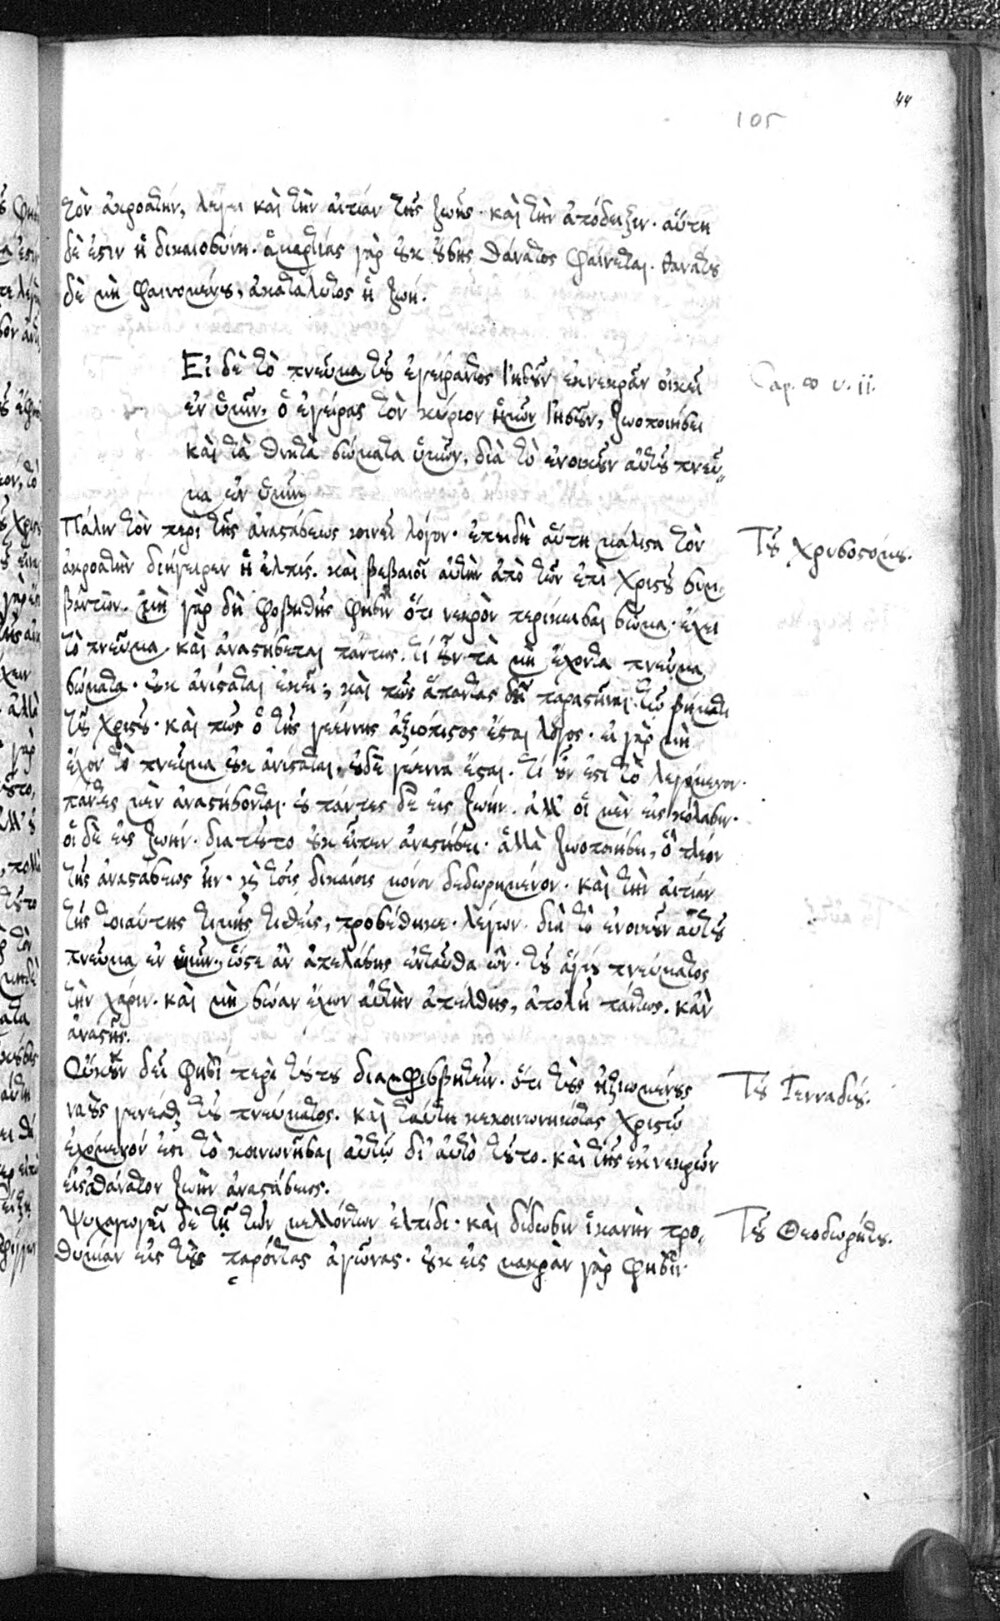 44
105
τὸν ἀκροατὴν, λέγει καὶ τὴν αἰτίαν τῆς ζωῆς· καὶ τὴν ἀπόδειξιν· αὕτη
δὲ ἐστιν ἡ δικαιοσύνη· ἁμαρτίας γὰρ οὐκ οὔσης θάνατος φαίνεται· θανάτου
δὲ μὴ φαινομένου, ἀκατάλυτος ἡ ζωή.
Εἰ δὲ τὸ πνεῦμα τοῦ ἐγείραντος Ἰησοῦν ἐκ νεκρῶν οἰκεῖ
ἐν ὑμῖν, ὁ ἐγείρας τὸν κύριον ἡμῶν Ἰησοῦν, ζωοποιήσει
καὶ τὰ θνητὰ σώματα ὑμῶν, διὰ τὸ ἐνοικοῦν αὐτοῦ πνεῦ-
μα ἐν ὑμῖν
Cap. 8 v. 11.
Πάλιν τὸν περὶ τῆς ἀναστάσεως κινεῖ λόγον· ἐπειδὴ αὕτη μάλιστα τὸν
Τοῦ Χρυσοστόμου.
ἀκροατὴν διήγειρεν ἡ ἐλπίς. καὶ βεβαιοῖ αὐτὴν ἀπὸ τῶν ἐπὶ Χριστοῦ συμ-
βάντων. μὴ γὰρ δὴ φοβηθῇς φησὶν ὅτι νεκρὸν περίκεισαι σῶμα· ἔχει
τὸ πνεῦμα· καὶ ἀναστήσεται πάντως. τί οὖν τὰ μὴ ἔχοντα πνεῦμα
σώματα· οὐκ ἀνίσταται ἐκεῖ; καὶ πῶς ἅπαντας δεῖ παραστῆναι τῷ βήματι
τοῦ Χριστοῦ· καὶ πῶς ὁ τῆς γεέννης ἀξιόπιστος ἔσται λόγος· εἰ γὰρ μὴ
ἔχον τὸ πνεῦμα οὐκ ἀνίσταται, οὐδὲ γέεννα ἔσται. τί οὖν ἐστὶ τὸ λεγόμενον·
πάντες μὲν ἀναστήσονται· οὐ πάντες δὲ εἰς ζωήν. ἀλλ' οἱ μὲν εἰς κόλασιν·
οἱ δὲ εἰς ζωήν· διατοῦτο οὐκ εἶπεν ἀναστήσει· ἀλλὰ ζωοποιήσει, ὃ πλέον
τῆς ἀναστάσεως ἦν· καὶ τοῖς δικαίοις μόνον δεδωρημένον· καὶ τὴν αἰτίαν
τῆς τοιαύτης τιμῆς τιθεὶς, προσέθηκε· λέγων· διὰ τὸ ἐνοικοῦν αὐτοῦ
πνεῦμα ἐν ὑμῖν· ὥστε ἂν ἀπελάσῃς ἐνταῦθα ὢν· τοῦ ἁγίου πνεύματος
τὴν χάριν· καὶ μὴ σώαν ἔχων αὐτὴν ἀπέλθῃς, ἀπολῇ πάντως. κἂν
ἀναστῇς.
Οὐκοῦν δεῖ φησὶ περὶ τούτου διαμφισβητεῖν· ὅτι τοὺς ἠξιωμένους
Τοῦ Γενναδίου.
ναοὺς γενέσθαι τοῦ πνεύματος· καὶ ταύτῃ κεκοινωνηκότας Χριστῷ
ἑχόμενόν ἐστι τὸ κοινωνῆσαι αὐτῷ δι' αὐτὸ τοῦτο· καὶ τῆς ἐκ νεκρῶν
εἰς ἀθάνατον ζωὴν ἀναστάσεως.
Ψυχαγωγεῖ δὲ τῇ τῶν μελλόντων ἐλπίδι· καὶ δίδωσιν ἱκανὴν προ-
Τοῦ Θεοδωρήτου.
θυμίαν εἰς τοὺς παρόντας ἀγῶνας· οὐκ εἰς μακρὰν γὰρ φησίν·